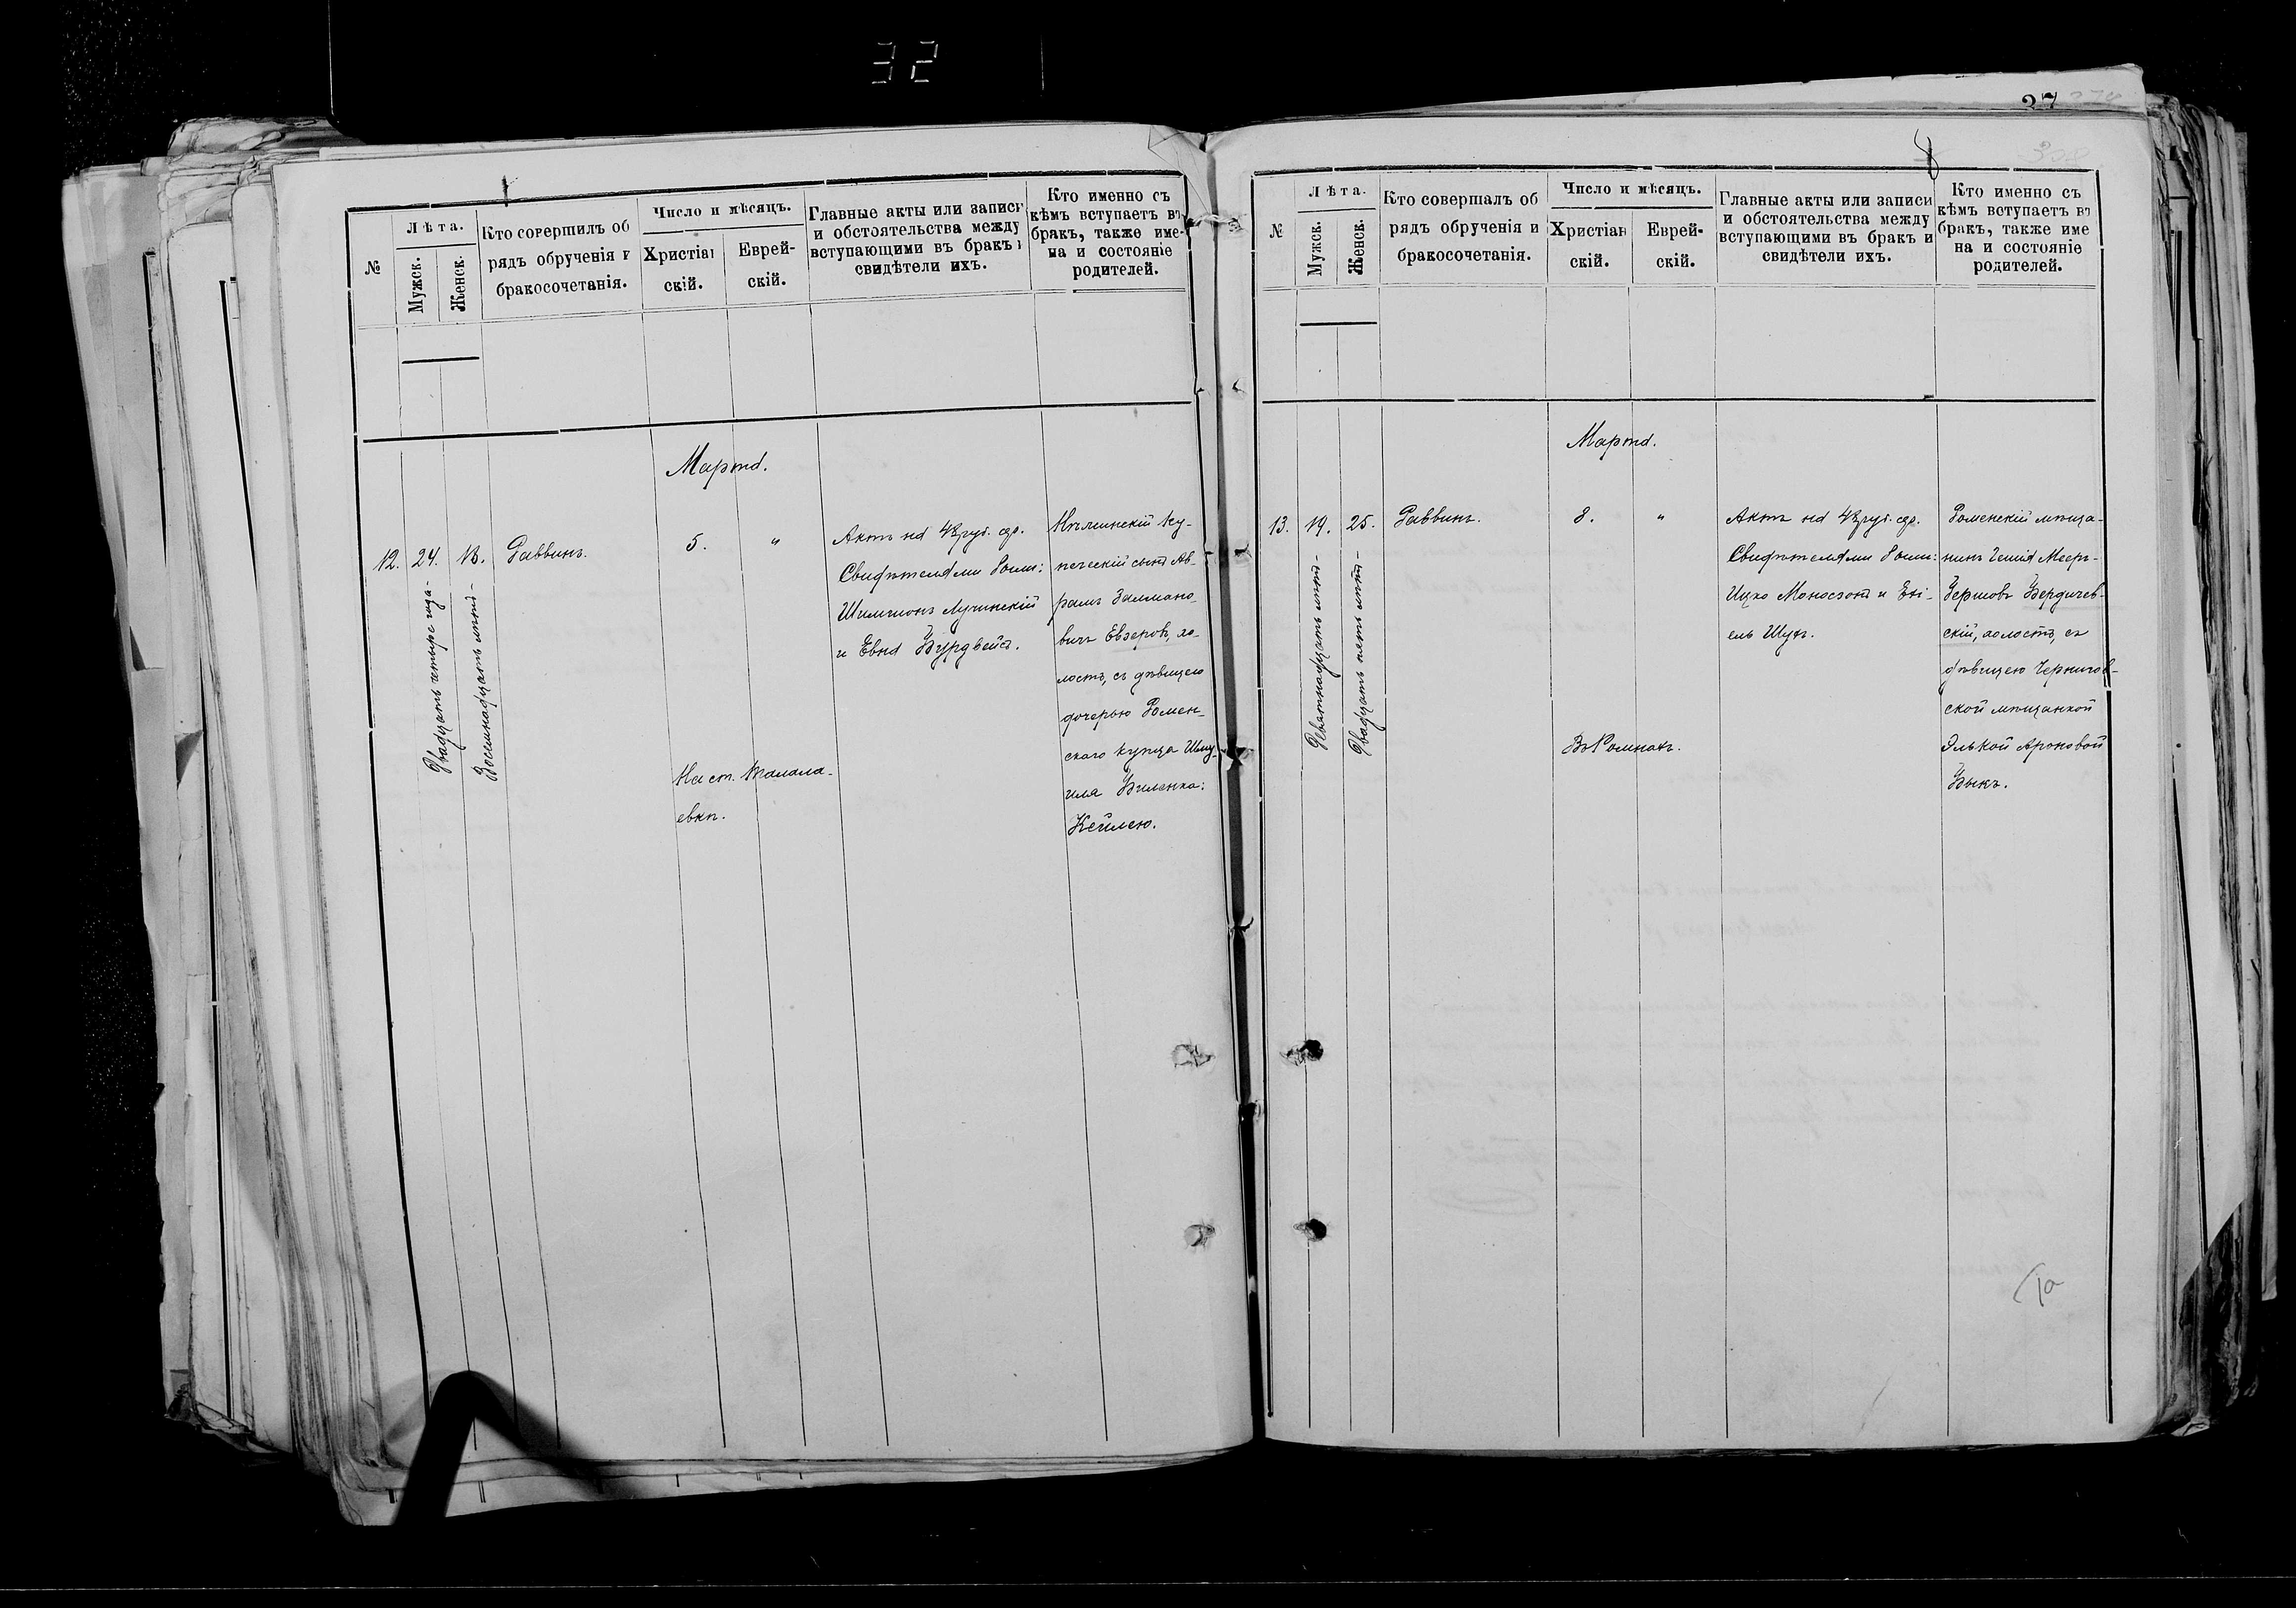 32
№
Лѣта.
Мужск.
Женск.
Кто совершилъ об
рядъ обрученія и
бракосочетанія.
Число и мѣсяцъ.
Христіан
скій.
Еврей-
скій.
Главные акты или записи
и обстоятельства между
вступающими въ бракъ и
свидѣтели ихъ.
Кто именно съ
кѣмъ вступаетъ въ
бракъ, также име-
на и состояніе
родителей.
Марта.
12.
24.
Двадцать четыре года
18.
Восемнадцать лѣтъ
Раввинъ.
5.
"
На ст. Талала-
евкѣ.
Актъ на 48 руб. сер.
Свидѣтелями были:
Шимшонъ Лучинскій
и Евна Бурдвейсъ.
Мглинскій ку-
печескій сынъ Ав-
рамъ Залмано-
вичъ Евзеровъ, хо-
лостъ, съ дѣвицею
дочерью Ромен-
скаго купца Шму-
иля Биленка:
Кейлею.
8
№
Лѣта.
Мужск.
Женск.
Кто совершалъ об
рядъ обрученія и
бракосочетанія.
Число и мѣсяцъ.
Христіан
скій.
Еврей-
скій.
Главные акты или записи
и обстоятельства между
вступающими въ бракъ и
свидѣтели ихъ.
Кто именно съ
кѣмъ вступаетъ въ
бракъ, также име
на и состояніе
родителей.
Марта.
13.
19.
Девятнадцать лѣтъ
25.
Двадцать пять лѣтъ
Раввинъ.
8.
"
Въ Ромнахъ.
Актъ на 48 руб. сер.
Свидѣтелями были:
Ицко Моносзонъ и Ехі-
ель Шуфъ.
Роменскій мѣща-
нинъ Гешія Мееръ-
Берковъ Бердичев-
скій, холостъ, съ
дѣвицею Чернигов-
ской мѣщанкой
Элькой Ароновой
Быкъ.